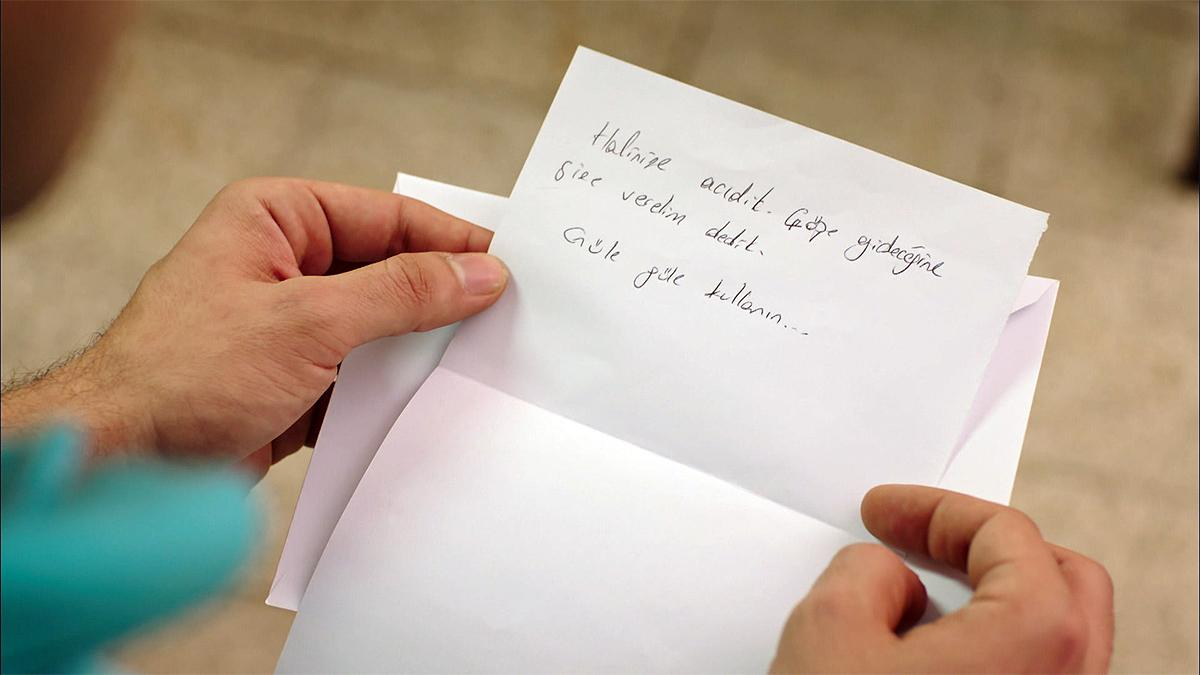 Halinize acıdık. Çöpe gideceğine
size verelim dedik.
Güle güle kullanın...